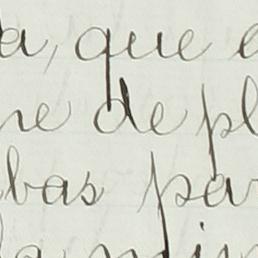 a, que e
ne de pl
bas pa